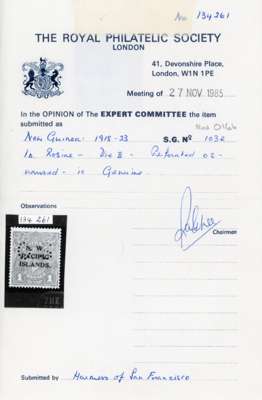 No 134261
THE ROYAL PHILATELIC SOCIETY
LONDON
41, Devonshire Place,
London, W1N 1PE
Meeting of 27 NOV. 1985
In the OPINION of The EXPERT COMMITTEE the item
submitted as
New Guinea: 1918-23 S.G. No 103c
1d Rosine - Die II - Perforated OS -
unused - is Genuine.
Observations
Chairman
134 261
N. W.
PACIFIC
ISLANDS.
1 1
Submitted by Harmers of San Francisco